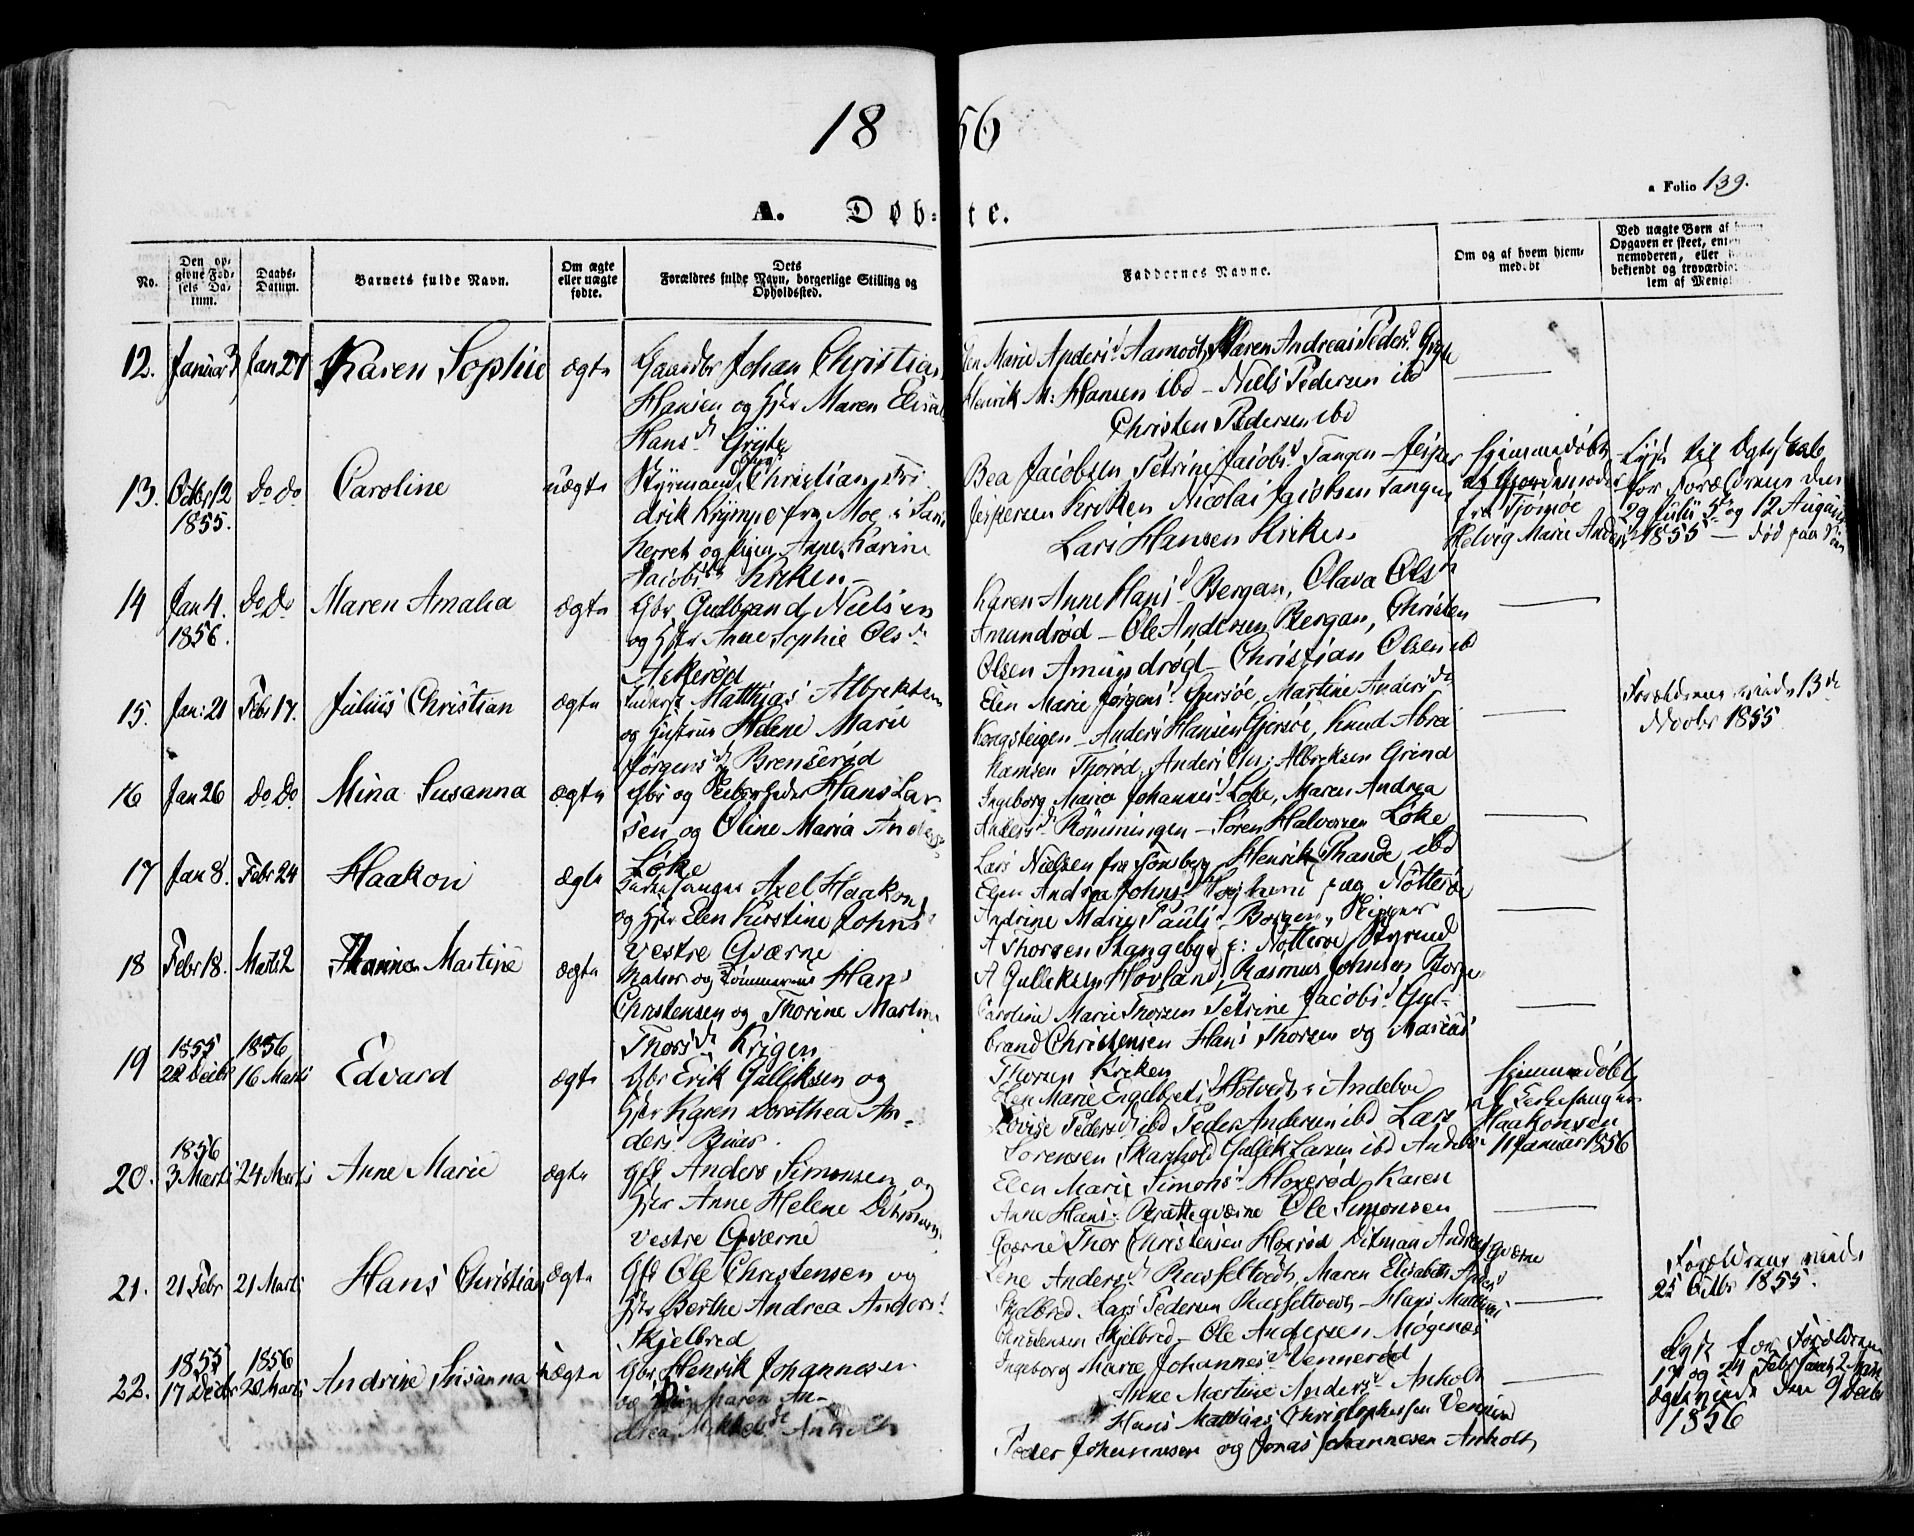 1856
a Folio 139.
A. Døb-te.
No.
Den opgivne Fødsels Datum.
Daabs-Datum.
Barnets fulde Navn.
Om ægte eller uægte fødte.
Dets Forældres fulde Navn, borgerlige Stilling og Opholdssted.
Faddernes Navne.
Om og af hvem hjemmedøbt
Ved uægte Børn af
Opgaven er skeet, enten
nemoderen, eller
bekjendt og troværdig
lem af Menig
12. Januar 3 Jan 27 Karen Sophie ægte Gaardbr Johan Christian
Hansen og Hstr Maren Elisab
Hans d Gryte
Marie Anders d Aamodt, Maren Andrea Peders d Gryte
Henrik M: Hansen ibd - Niels Pedersen ibd
Christen Pedersen ibd
13. Octbr 12 1855. Do Do Caroline uægte Styrmand Christian Fri
drik Krympe fra Moe i Sand
herret og Pigen Anne Karine
Jacobs d Kriken -
Bea Jacobsen Petrine Jacobs d Tangen - Jesper
Jespersen Kriken Nicolai Jacobsen Tangen
Lars Hansen Kriken.
Hjemmedøbt
af Gjordemoder
fra Tjømøe
Helvig Marie Anders
Lyst til Ægteskab
for Forældrene den
29 Julii 5te og 12 August
1855 - død paa
14 Jan 4. 1856. Do Do Maren Amalia ægte Gbr. Gulbrand Nielsen
og Hstr Anne Sophie Ols dr
Askerød
Karen Anne Hans d Bergan, Olava Ols dr
Amundrød - Ole Andersen Bergan, Christen
Olsen Amundrød - Christian Olsen ibd
15. Jan: 21 Febr 17. Julius Christian ægte Inderst Matthias Albrektsen
og Hustrue Helene Marie
Jørgens dr Brenserød
Elen Marie Jørgens d Gjersøe, Martine Anders dr
Kongsteigen - Anders Hansen Gjersøe, Knud Abra
hamsen Thorød, Anders Chr: Albreksen Grind
Forældrene viede 13 de
Novbr 1855
16 Jan 26 Do Do Mina Susanna ægte Gbr og Hans Lar-
sen og Oline Maria Anders
Løke
Ingeborg Maria Johannes d Løke, Maren Andrea
Anders d Rønningen - Søren Halvorsen Løke
Lars Nielsen fra Tønsberg Henrik Thande ibd
17 Jan 8. Febr 24 Haakon ægte Kirkesanger Axel Haakons
og Hstr Elen Kirstine Johns d
Vestre Qværne
Elen Andrea Johns d paa Nøtterøe
Andrine Marie Pauls d Borgen, Skipper
A Thorsen Stangeby p: Nøtterøe Styrmd
A Gulleksen Hovland, Rasmus Johnsen Borge
18 Febr 18. Marts 2 Thorine Martine ægte Matros og Tømmermd Hans
Christensen og Thorine Martine
Thors dr Krigen
Caroline Marie Thorsen Petrine Jacobs d Gul-
brand Christensen Hans Thorsen og Marius
Thorsen Kriken
19 1855 22 Decbr 1856 16 Marts Edvard ægte Gbr Erik Gulleksen og
Hstr Karen Dorothea An-
ders d Buer.
Elen Marie Engelbrets d Hotvedt i Andebu
Lovise Peders d ibd Peder Andersen ibd Lars
Sørensen Skarsholt Gullek Larsen ibd Andebu
Hjemmedøbt
af Kirkesanger
Haakonsen
11 Januar 1856
20. 1856 3 Marts 24 Marts Anne Marie ægte Gft Anders Simonsen og
Hstr Anne Helene Ditmans
Vestre Qværne
Elen Marie Simons d Haxerød Karen
Anne Hans d Brattegværne Ole Simonsen
Qværne Thor Christensen Haxrød Ditman Anders Qværne
21. 21 Febr 21 Marts Hans Christian ægte Gft Ole Christensen og
Hstr Berthe Andrea Anders d
Skjelbred
Lene Anders dr Ræsseltvedt, Maren Elisabeth Anders
Skjelbred. Lars Pedersen Ræsseltvedt - Hans Mathias
Christensen Skjelbred - Ole Andersen Møgenæs
Forældrene viede
25 Octbr 1855.
22. 1855 17 Decbr 1856 20 Marts Andrine Susanna uægte Gbr. Henrik Johannesen
og Pigen Maren An-
drea Mikkels dr Anholt
Ingeborg Marie Johannes d Vennerød
Anne Martine Anders d Anholt
Hans Matthias Christophersen Vennerød
Peder Johannesen og Jonas Johannesen Anholt
Lyst for Forældrene
17 og 24 Febr samt 2 Marts
ægteviede den 9 Decbr
1856